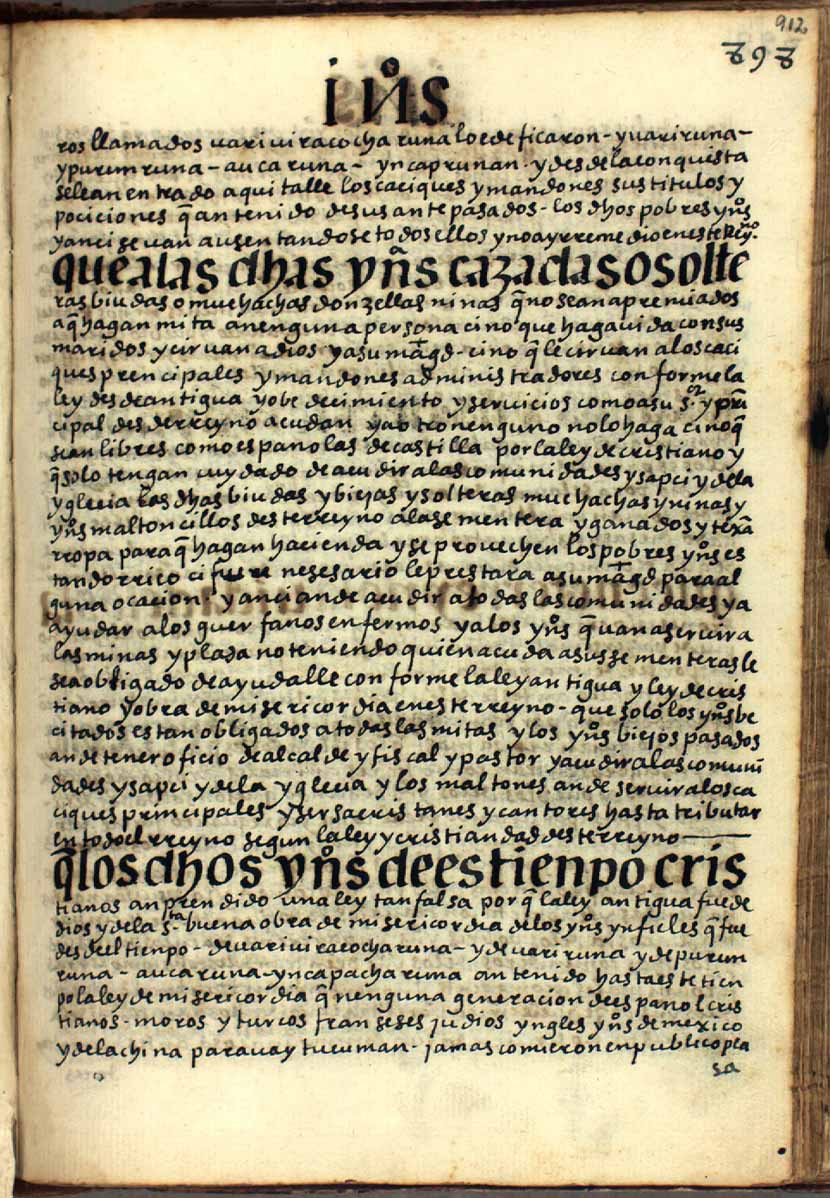 912
898
i Ns
ros llamados uari uiracocha runa lo edeficaron - y uari runa -
y purun runa - auca runa - yncap runan · y desde la conquista
se le an entrado a quitalle los caciques y mandones sus titulos y
pociciones q̃ an tenido de sus antepasados - los dhos pobres yns
y anci se uan ausentandose todos ellos y no ay rremedio en este rreyº
que a las dhas ynas cazadas o solte
ras biudas o muchachas donzellas ninas q̃ no sean apremiados
a q̃ hagan mita a nenguna persona cino que haga uida con sus
maridos y ciruan a dios y a su magd - cino q̃ le ciruan a los caci
ques prencipales y mandones administradores conforme la
ley desde antigua y obedecimiento y seruicios como a su sr y prin
cipal deste rreyno acudan y a otro nenguno no lo haga cino q̃
sean libres como espanolas de castilla por la ley de cristiano y
q̃ solo tengan cuydado de acudir a las comunidades y sapci y de la
yglecia las dhas biudas y biejas y solteras muchachas y ninas y
yns maltoncillos deste rreyno a la sementera y ganados y texã
rropa para q̃ hagan hacienda y se prouechen los pobres yns es
tando rrico ci fuere nesesario le prestara a su magd para al
guna ocacion · y anci an de acudir a todas las comunidades y a
ayudar a los guerfanos enfermos y a los yns q̃ uan a seruir a
las minas y plasa no teniendo quien acuda a sus sementeras le
sea obligado de ayudalle conforme la ley antigua y ley de cris
tiano y obra de misericordia en este rreyno - que solo los yns be
citados estan obligados a todas las mitas y los yns biejos pasados
an de tener oficio de alcalde y fiscal y pastor y acudir a las comuni
dades y sapci y de la yglecia y los maltones an de seruir a los ca
ciques principales y ser sacristanes y cantores hasta tributar
en todo el rreyno segun la ley y cristiandad deste rreyno
q̃ los dhos yns de es tienpo cris
tianos an prendido una ley tan falsa por q̃ la ley antigua fue de
dios y de la sta buena obra de misericordia de los yns ynficles q̃ fue
desde el tienpo - de uari uiracocha runa - y de uari runa y de purun
runa - auca runa - ynca pacha runa an tenido hasta este tien
po la ley de misericordia q̃ nenguna generacion de espanol cris
tianos - moros y turcos franseses judios yngles yns de mexico
y de la china parauay tucuman - jamas comieron en publico plã
sa